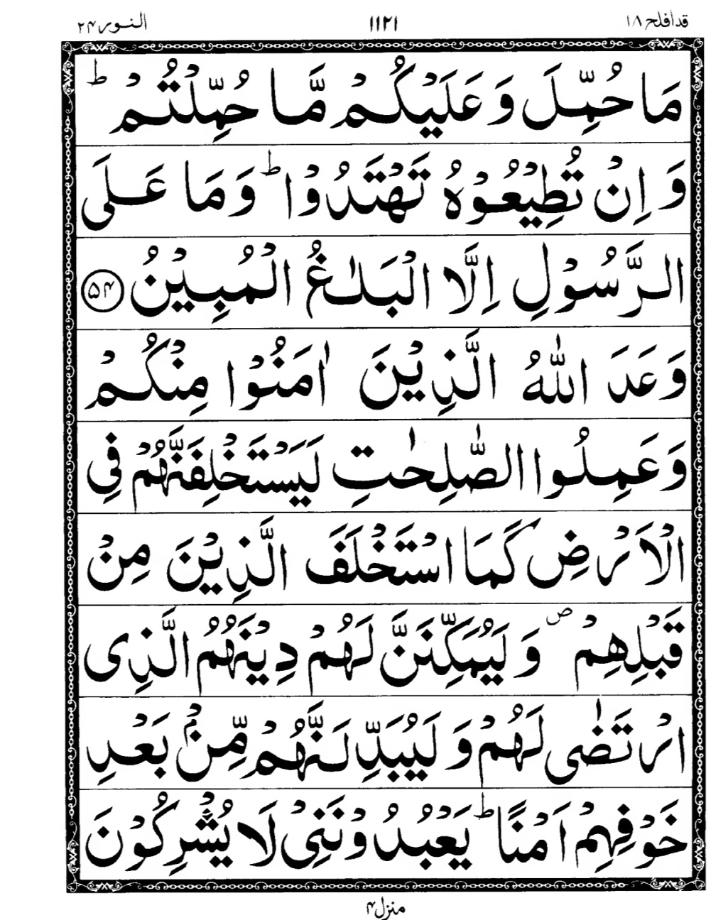 قد افلح ۱۸
۱۱۲۱
النور ۲۴
مَا حُمِّلَ وَعَلَيْكُمْ مَّا حُمِّلْتُمْ ؕ
وَاِنْ تُطِيْعُوْهُ تَهْتَدُوْا ؕ وَمَا عَلَى
الرَّسُوْلِ اِلَّا الْبَلٰغُ الْمُبِيْنُ ۵۴
وَعَدَ اللّٰهُ الَّذِيْنَ اٰمَنُوْا مِنْكُمْ
وَعَمِلُوا الصّٰلِحٰتِ لَيَسْتَخْلِفَنَّهُمْ فِى
الْاَرْضِ كَمَا اسْتَخْلَفَ الَّذِيْنَ مِنْ
قَبْلِهِمْ ۖ وَلَيُمَكِّنَنَّ لَهُمْ دِيْنَهُمُ الَّذِى
ارْتَضٰى لَهُمْ وَلَيُبَدِّلَنَّهُمْ مِّنْۢ بَعْدِ
خَوْفِهِمْ اَمْنًا ؕ يَعْبُدُوْنَنِىْ لَا يُشْرِكُوْنَ
منزل ۴